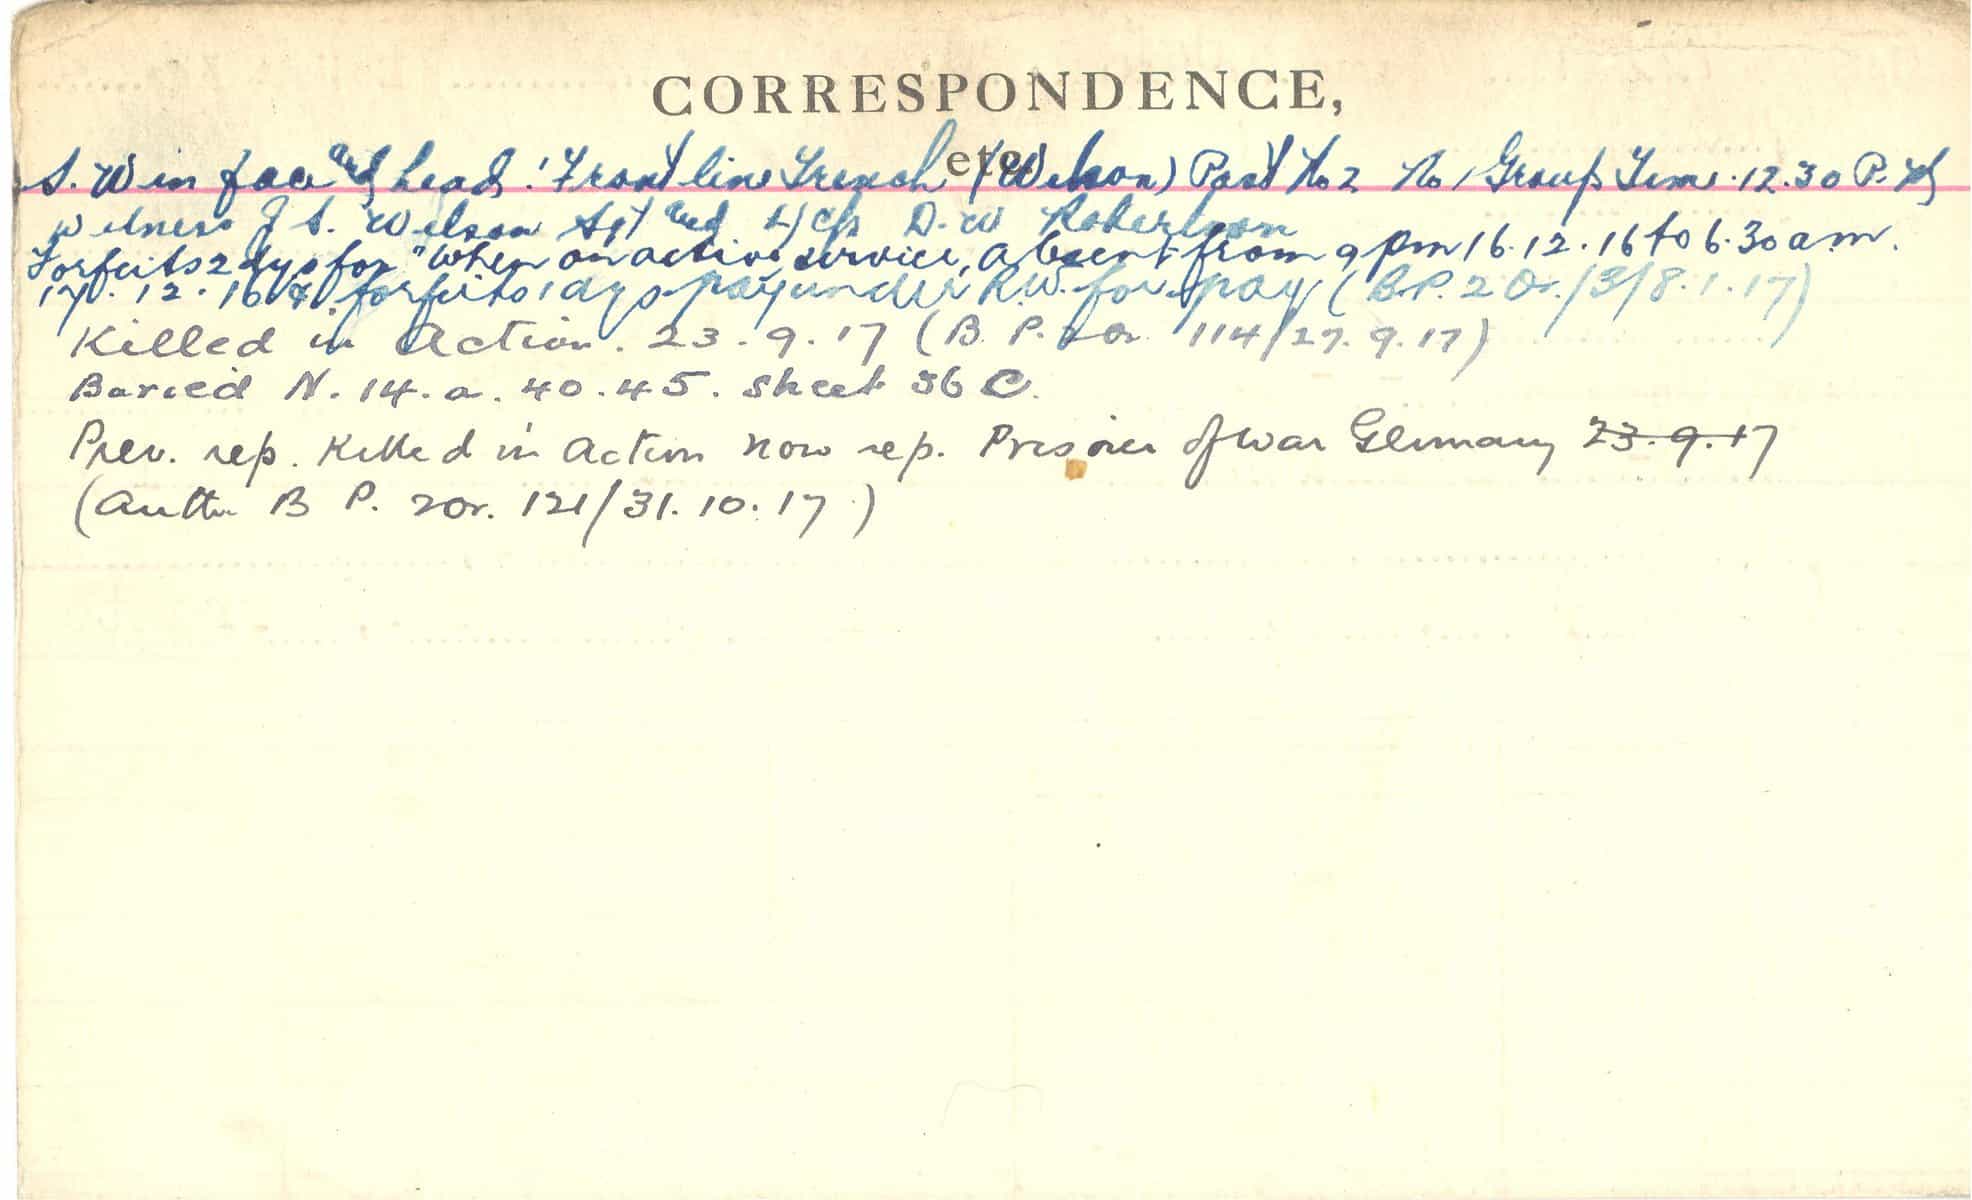 CORRESPONDENCE,
etc.
S. W in face and head. Front line Trench (Wilson) Post No 2 No 1 Group Time. 12.30 P.M
Witness J S. Wilson Sgt and L/Cp D. W Robertson
Forfeits 2 dys for "When on active service, absent from 9 pm 16.12.16 to 6.30 am.
17.12.16 & forfeits 1 dys pay under R.W. for pay (B.P. 2 Or. /3/8.1.17)
Killed in Action. 23.9.17 (B P. 2 Or. 114/27.9.17)
Buried N. 14. a. 40.45. Sheet 36 C.
Prev. rep. Killed in Action now rep. Prisoner of war Germany 23.9.17
(Auth B P. 2 Or. 121/31.10.17.)